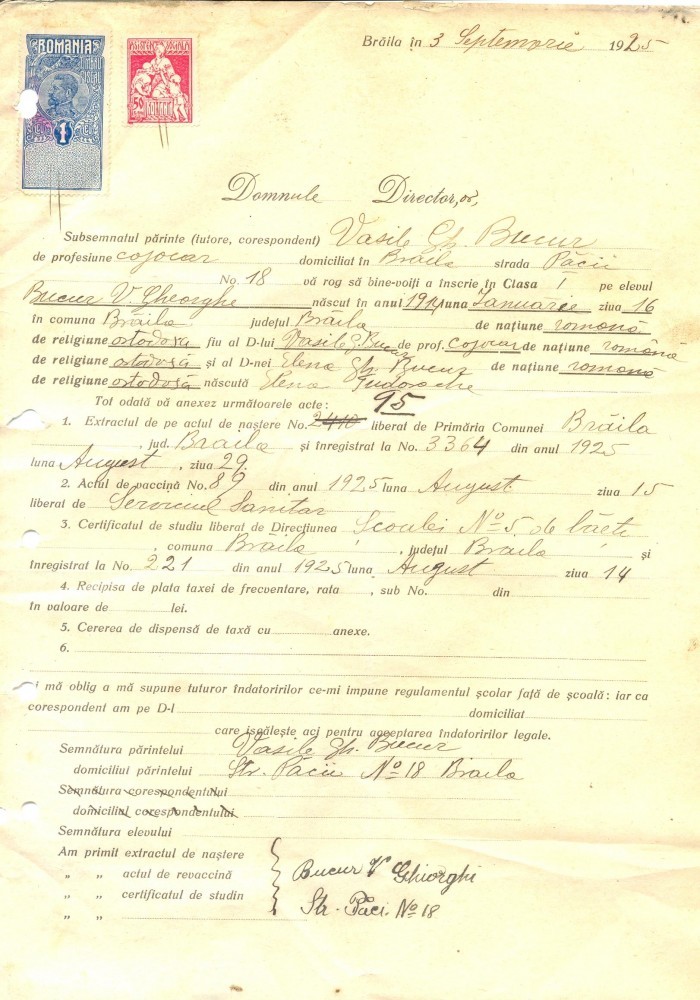 ROMANIA
1
50
Brăila în 3 Septemorie 1925
Domnule Director,
Subsemnatul părinte (tutore, corespondent) Vasile Gh. Bucur
de profesiune cojocar domiciliat în Brăila strada Păcii
No. 18 vă rog să bine-voiți a înscrie în Clasa I pe elevul
Bucur V. Gheorghe născut în anul 1914 luna Ianuarie ziua 16
în comuna Brăila județul Brăila de națiune romană
de religiune ortodoxă fiu al D-lui Vasile G. Bucur de prof. cojocar de națiune română
de religiune ortodoxă și al D-nei Elena Gh. Bucur de națiune romană
de religiune ortodoxă născută Elena Tudorache
Tot odată vă anexez următoarele acte: 95
1. Extractul de pe actul de naștere No. liberat de Primăria Comunei Brăila
, jud. Braila și înregistrat la No. 3364 din anul 1925
luna August, ziua 29.
2. Actul de vaccină No. 89 din anul 1925 luna August ziua 15
liberat de Serviciul Sanitar
3. Certificatul de studiu liberat de Direcțiunea Scoalei No 5. de băeti
, comuna Brăila, județul Braila și
înregistrat la No. 221 din anul 1925 luna August ziua 14
4. Recipisa de plata taxei de frecventare, rata , sub No. din
în valoare de lei.
5. Cererea de dispensă de taxă cu anexe.
6.
i mă oblig a mă supune tuturor îndatoririlor ce-mi impune regulamentul școlar față de școală: iar ca
corespondent am pe D-l domiciliat
care iscălește aci pentru acceptarea îndatoririlor legale.
Semnătura părintelui Vasile Gh. Bucur
domiciliul părintelui Str. Păcii No 18 Braila
Semnătura corespondentului
domiciliul corespondentului
Semnătura elevului
Am primit extractul de naștere
„ „ actul de revaccină Bucur V Ghiorghi
„ „ certificatul de studin
„ „ Str. Păci. No 18